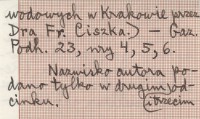 wodowych w Krakowie przez
Dra Fr. Ciszka.) — Gaz.
Podh. 23, nry 4, 5, 6.
Nazwisko autora po-
dano tylko w drugim od-
cinku. (i trzecim